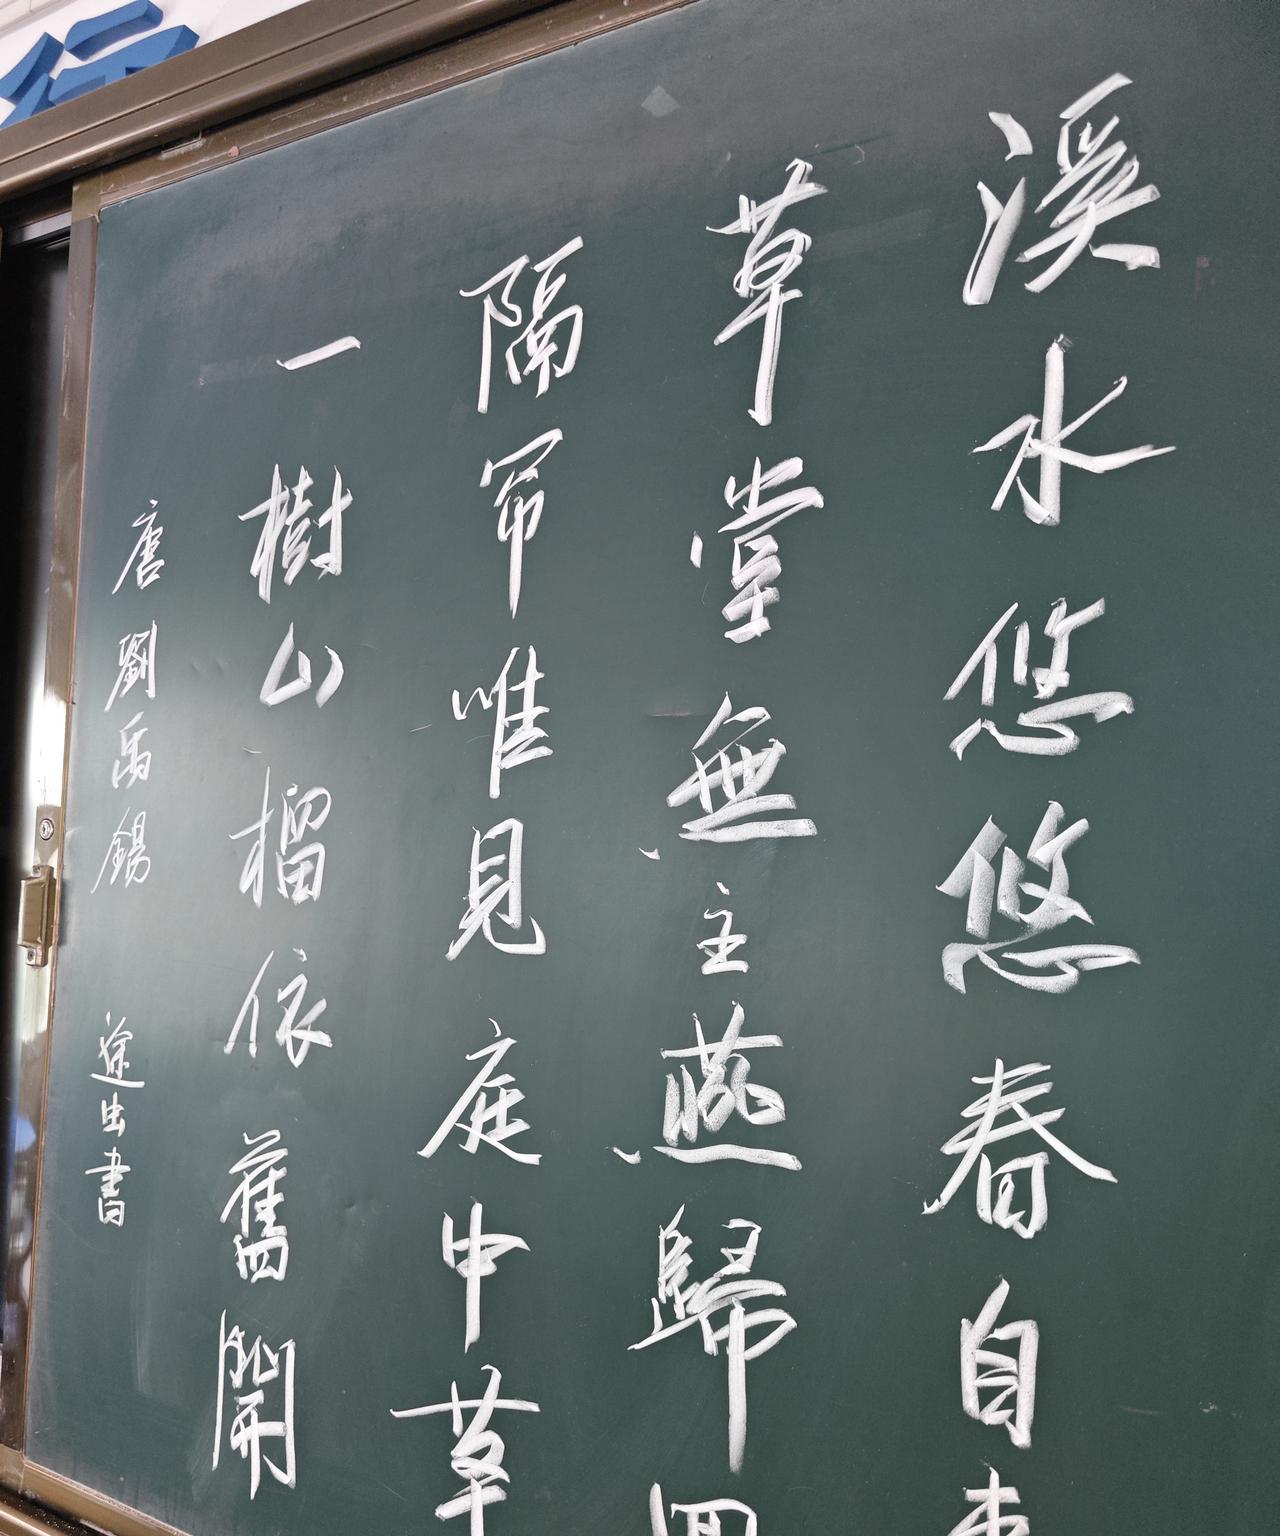 溪水悠悠春自
草堂無主燕歸回
隔帘唯見庭中草
一樹山榴依舊開
唐劉禹錫 途出書